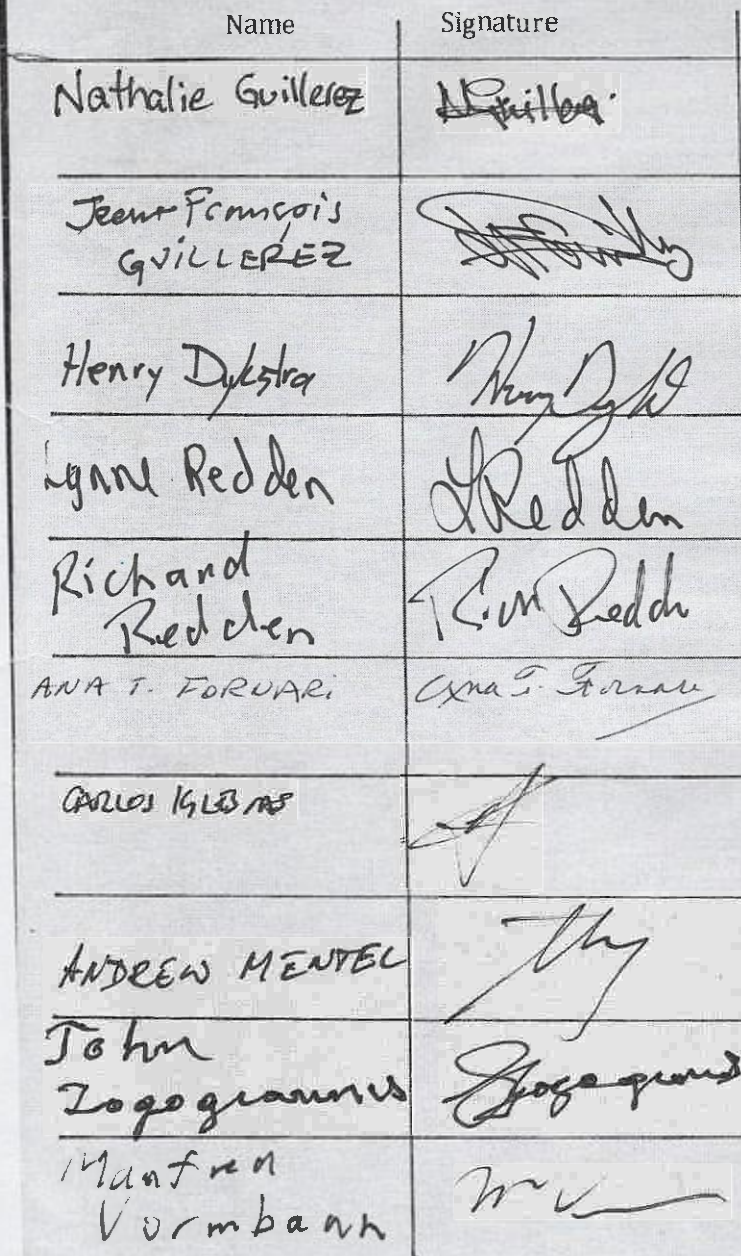 Name Signature
Nathalie Guillerez
Jean-François
GUILLEREZ
Henry Dykstra Henry
Lynne Redden LRedden
Richard
Redden
ANA T. FORNARi Ana T. Fornari
CARLOS IGLESIAS
ANDREW MENTEL
John
Zogogiannis Zogogiannis
Manfred
Vormbaan